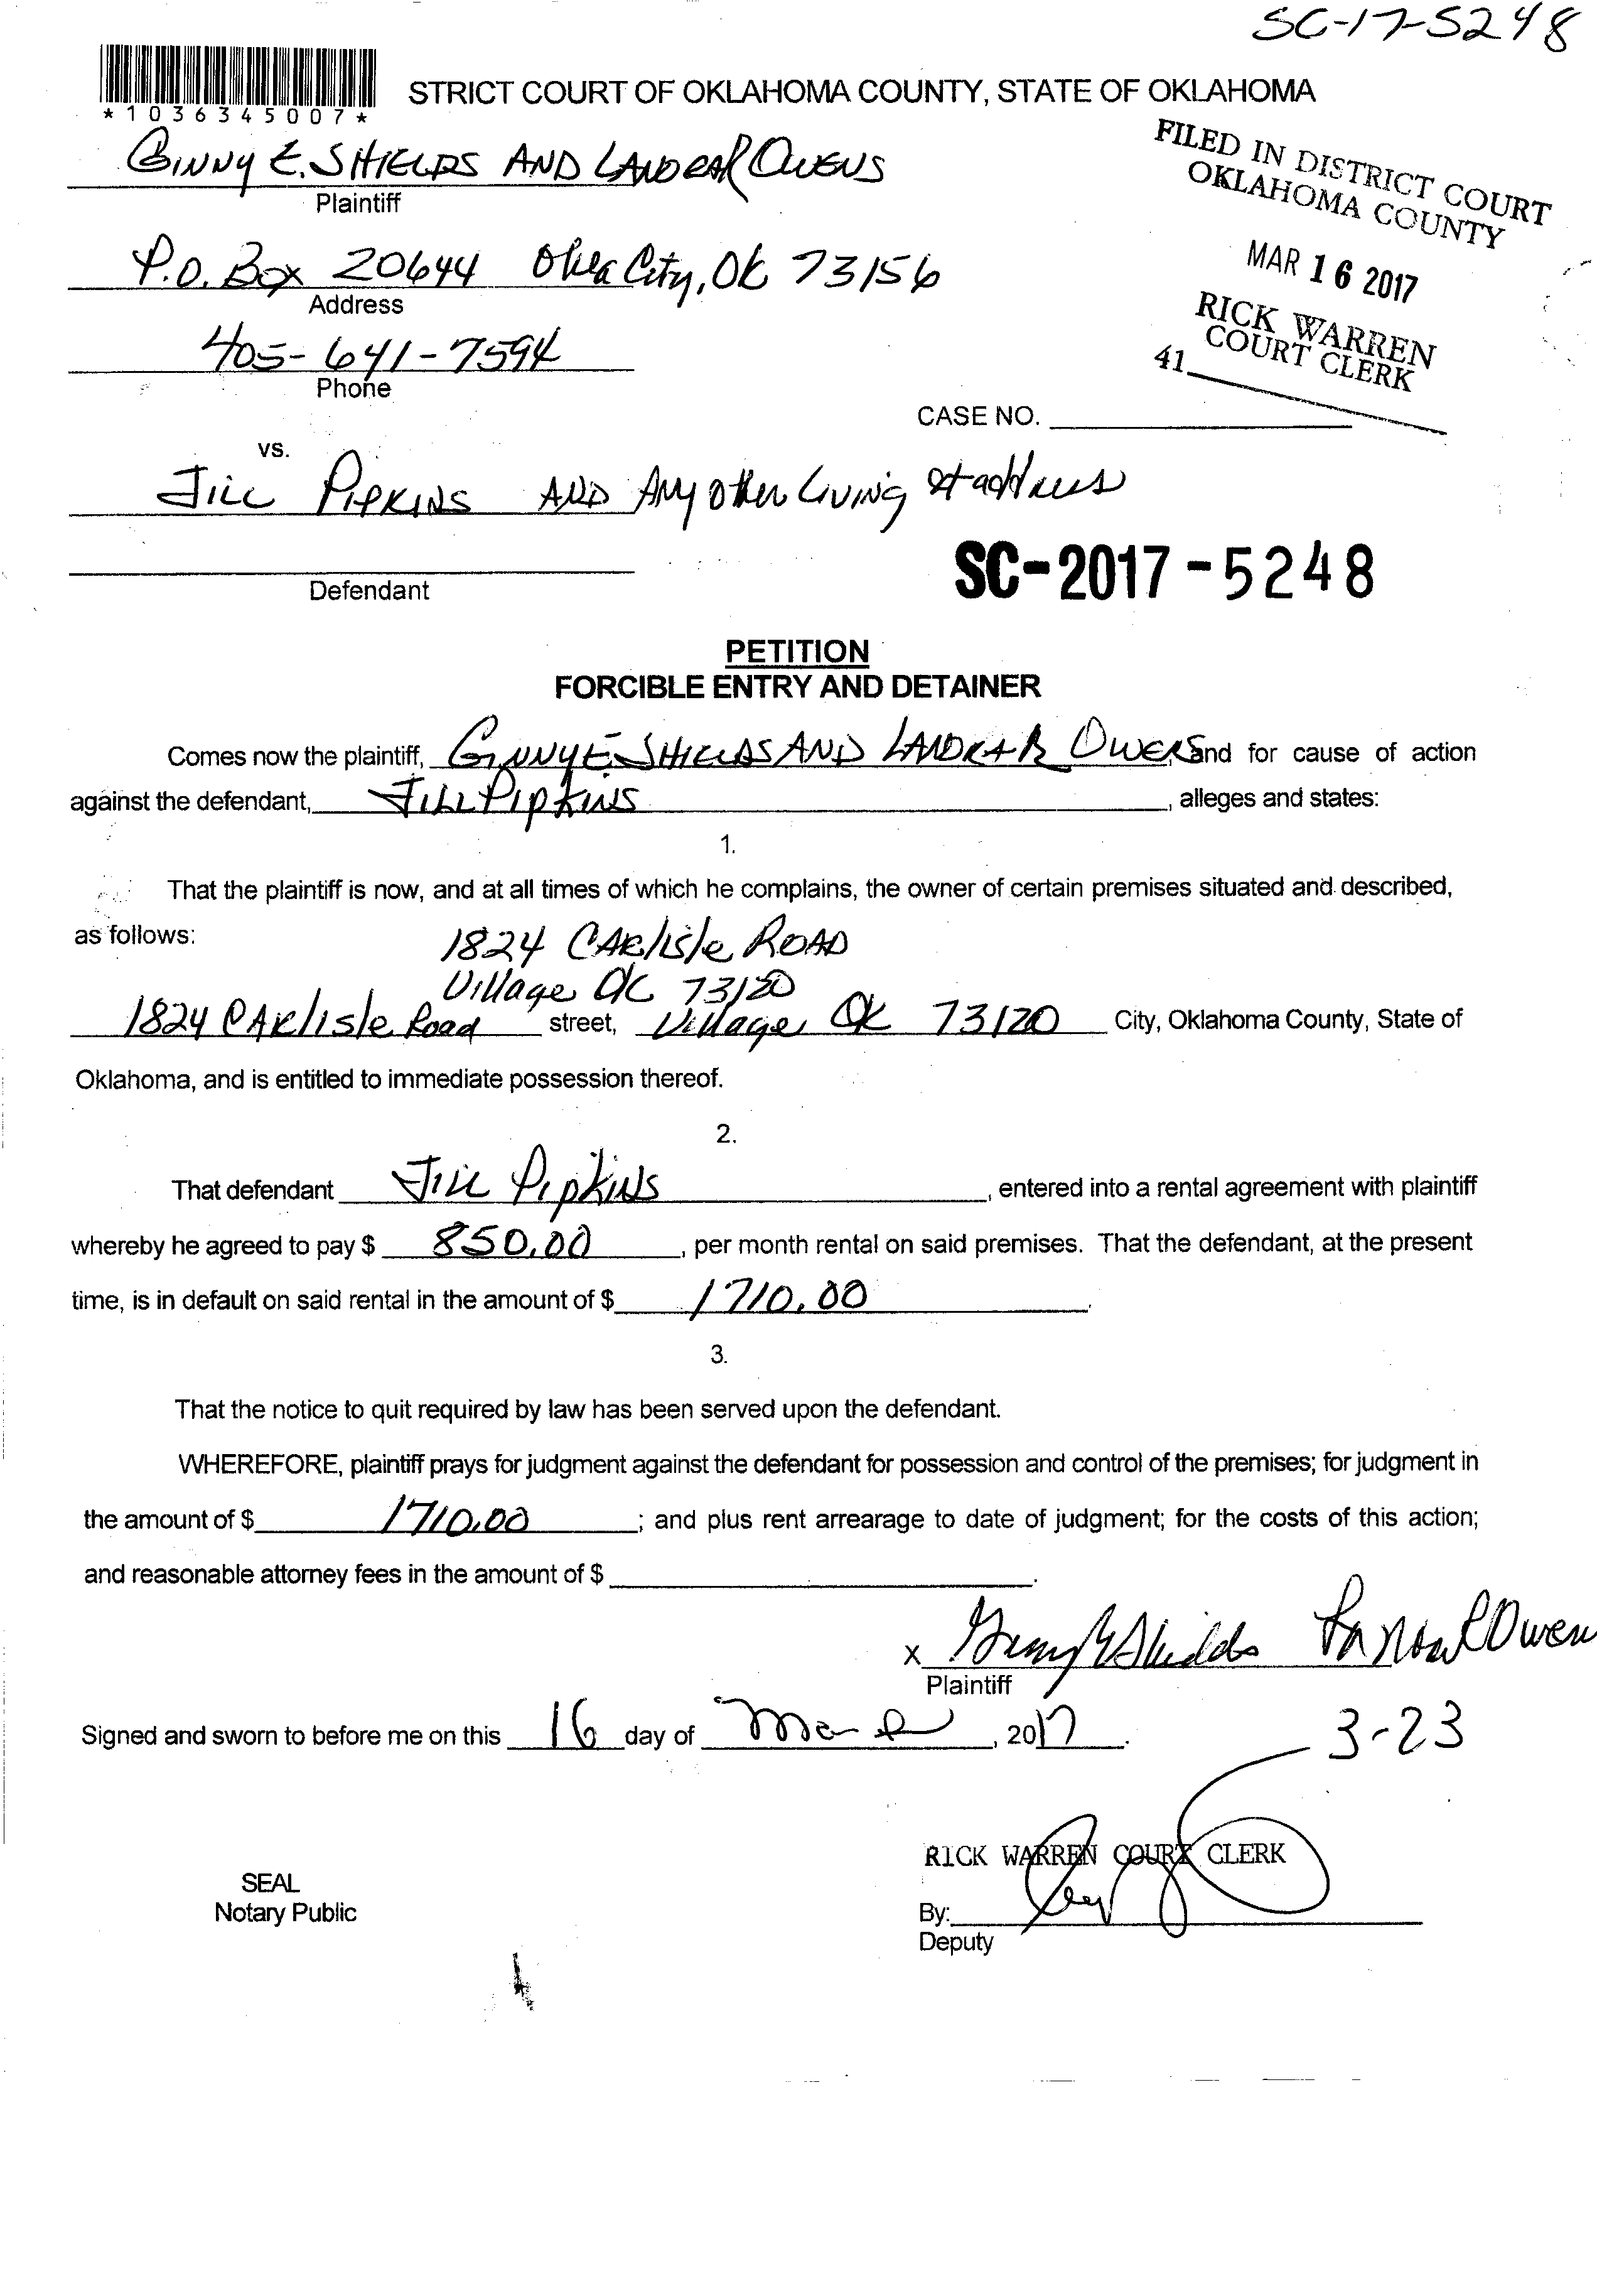 SC-17-5248
STRICT COURT OF OKLAHOMA COUNTY, STATE OF OKLAHOMA
*1036345007*
GINNY E. SHIELDS AND LANDRAR OWENS
Plaintiff
FILED IN DISTRICT COURT
OKLAHOMA COUNTY
P.O. Box 20644 Okla City, OK 73156
Address
MAR 16 2017
405-641-7594
Phone
RICK WARREN
COURT CLERK
41
CASE NO.
vs.
JILL PIPKINS AND Any other Living at address
SC-2017-5248
Defendant
PETITION
FORCIBLE ENTRY AND DETAINER
Comes now the plaintiff, GINNY E SHIELDS AND LANDRAR OWENS and for cause of action
against the defendant, JILL PIPKINS, alleges and states:
1.
That the plaintiff is now, and at all times of which he complains, the owner of certain premises situated and described,
as follows: 1824 CARlisle ROAD
Village OK 73120
1824 CARlisle Road street, Village OK 73120 City, Oklahoma County, State of
Oklahoma, and is entitled to immediate possession thereof.
2.
That defendant Jill Pipkins, entered into a rental agreement with plaintiff
whereby he agreed to pay $ 850.00, per month rental on said premises. That the defendant, at the present
time, is in default on said rental in the amount of $ 1710.00.
3.
That the notice to quit required by law has been served upon the defendant.
WHEREFORE, plaintiff prays for judgment against the defendant for possession and control of the premises; for judgment in
the amount of $ 1710.00; and plus rent arrearage to date of judgment; for the costs of this action;
and reasonable attorney fees in the amount of $.
x Ginny E Shields Owen
Plaintiff
Signed and sworn to before me on this 16 day of March, 2017.
3-23
RICK WARREN COURT CLERK
SEAL
Notary Public
By:
Deputy